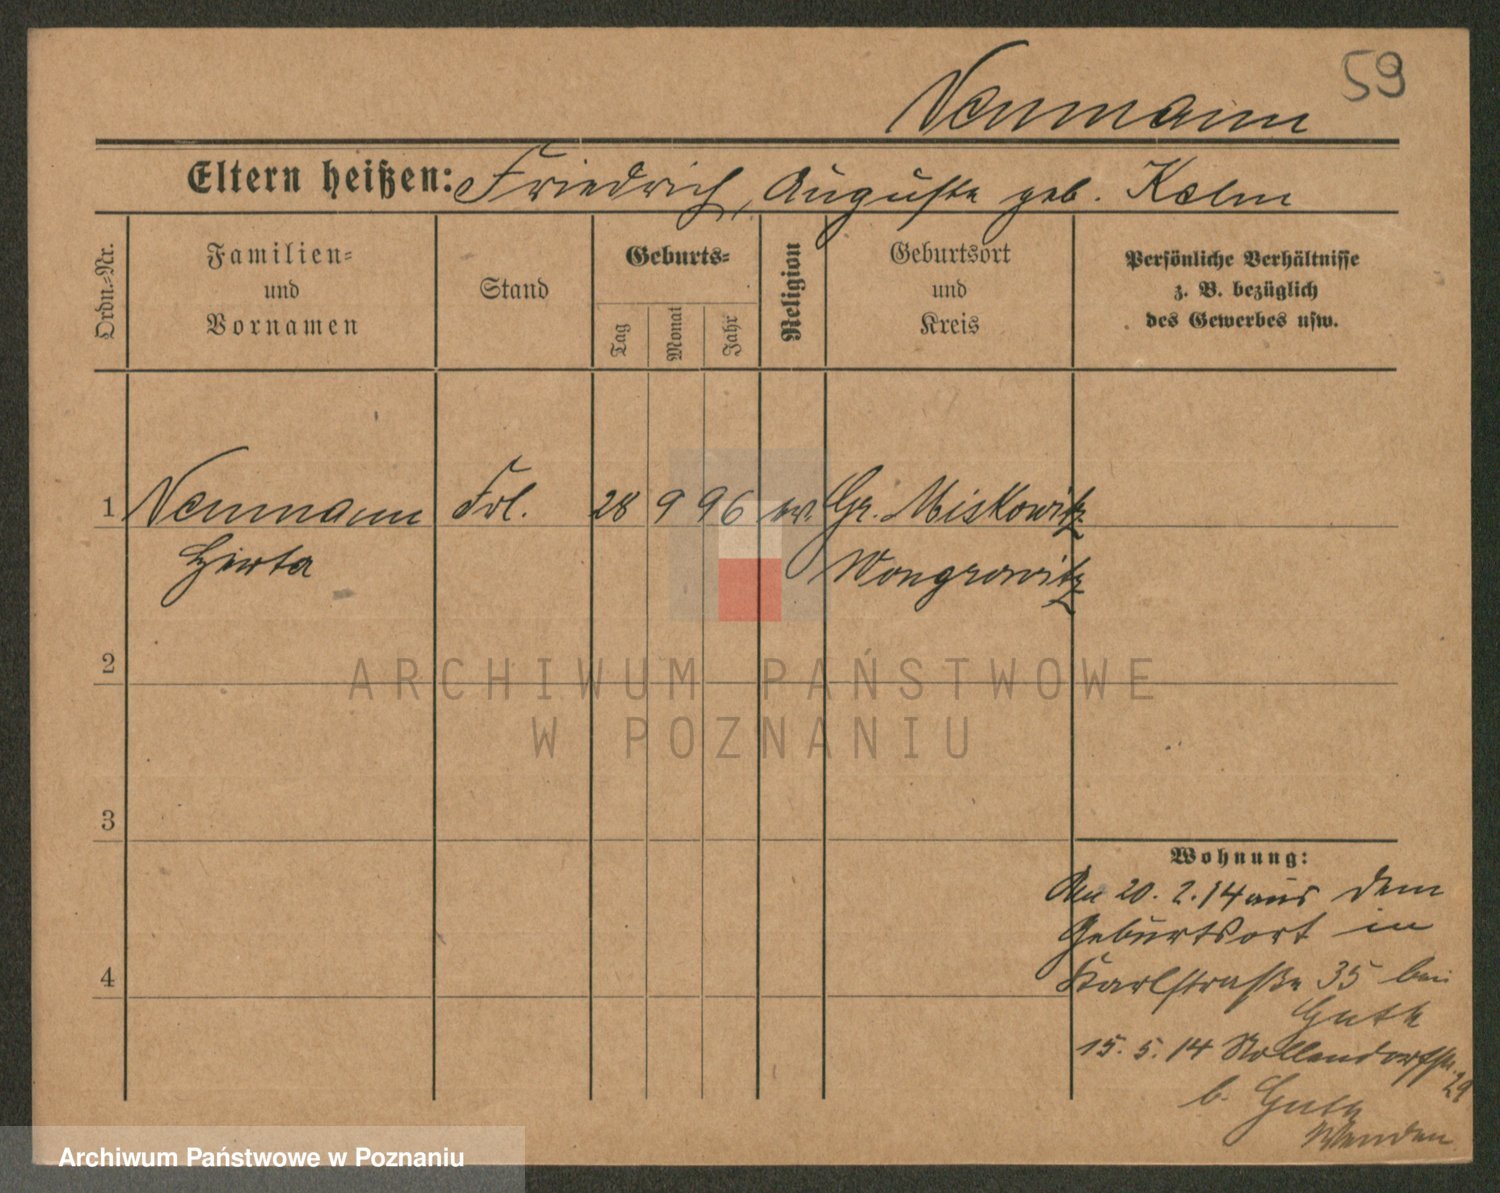 59
Neumann
Eltern heißen: Friedrich, Auguste geb. Kelm
Ordn.-Nr.
Familien-
und
Vornamen
Stand
Geburts-
Tag
Monat
Jahr
Religion
Geburtsort
und
Kreis
Persönliche Verhältnisse
z. B. bezüglich
des Gewerbes usw.
1 Neumann Frl. 28 9 96 ev. Gr. Miskowitz
Herta Wongrowitz
2
ARCHIWUM PAŃSTWOWE
W POZNANIU
3
Wohnung:
20. 2. 14 aus dem
Geburtsort in
Karlstraße 35 bei
Guth
4
15. 5. 14 Nollendorfstr. 29
b. Guth
Archiwum Państwowe w Poznaniu